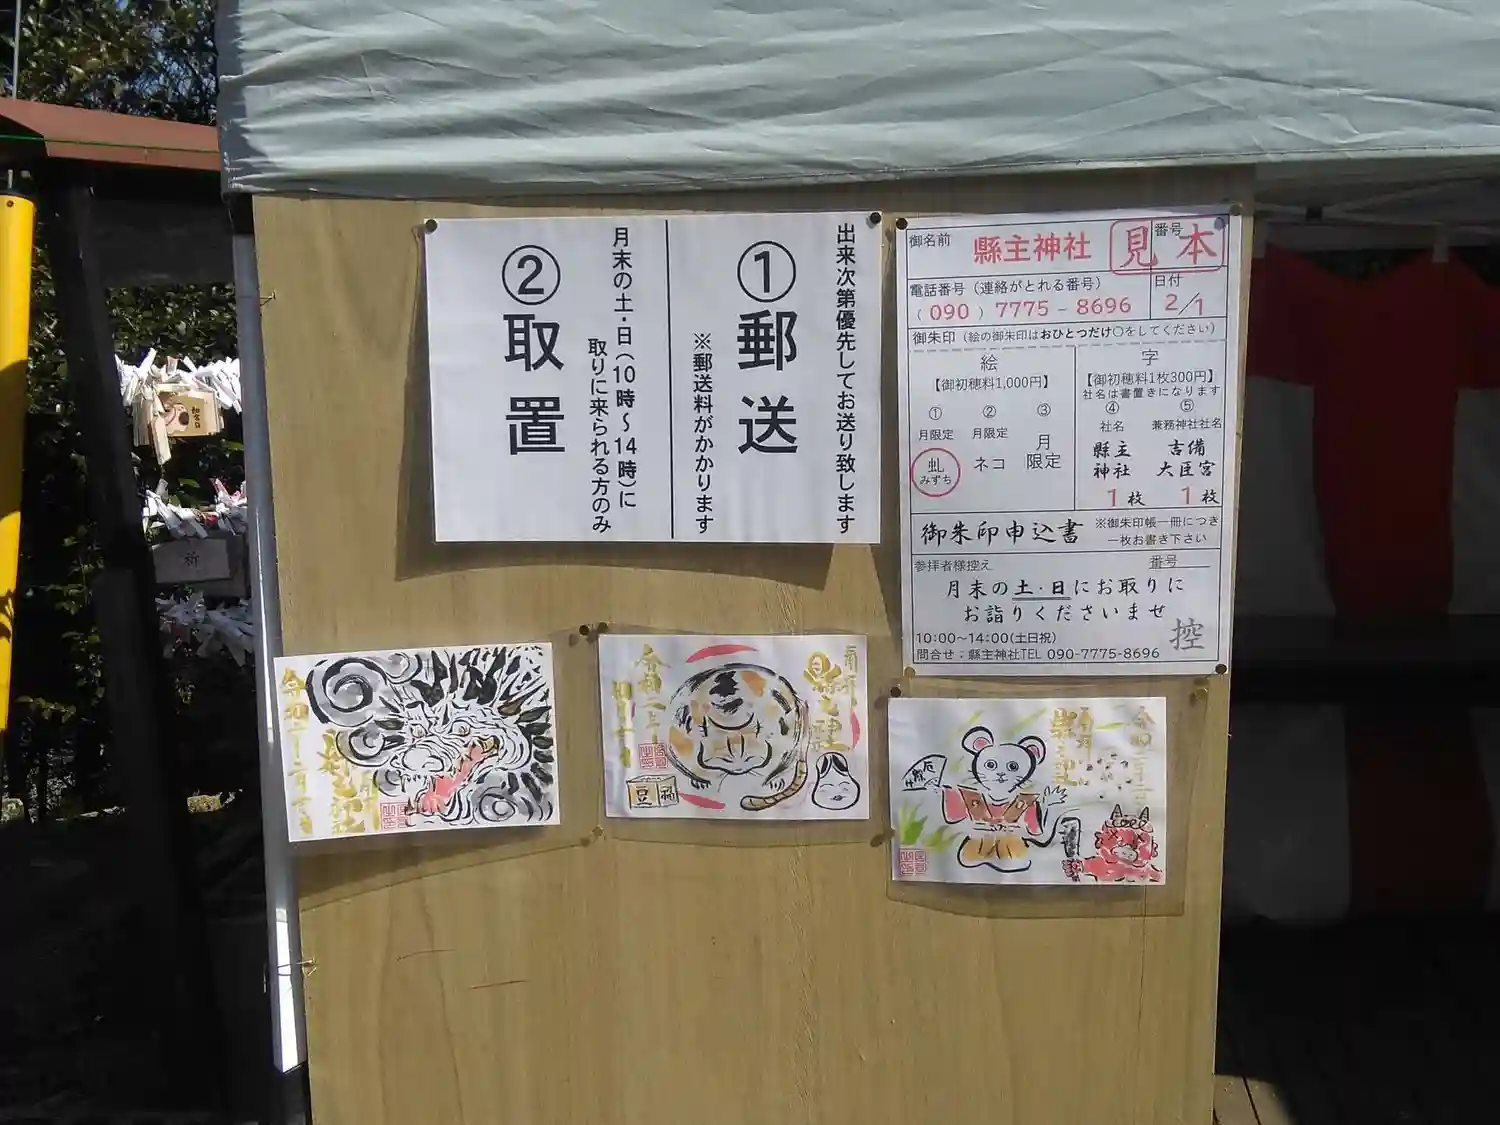 出来次第優先してお送り致します
①郵送
※郵送料がかかります
②取置
月末の土・日(10時～14時)に
取りに来られる方のみ
御名前
縣主神社
見本
番号
電話番号（連絡がとれる番号）
(090) 7775-8696
日付
2/1
御朱印（絵の御朱印はおひとつだけ○をしてください）
絵
【御初穂料1,000円】
①
月限定
虬
みずち
②
月限定
ネコ
③
月
限定
字
【御初穂料1枚300円】
社名は書置きになります
④
社名
縣主
神社
1枚
⑤
兼務神社社名
吉備
大臣宮
1枚
御朱印申込書
※御朱印帳一冊につき
一枚お書き下さい
参拝者様控え
番号
月末の土・日にお取りに
お詣りくださいませ
控
10:00～14:00(土日祝)
問合せ：縣主神社TEL 090-7775-8696
豆
福